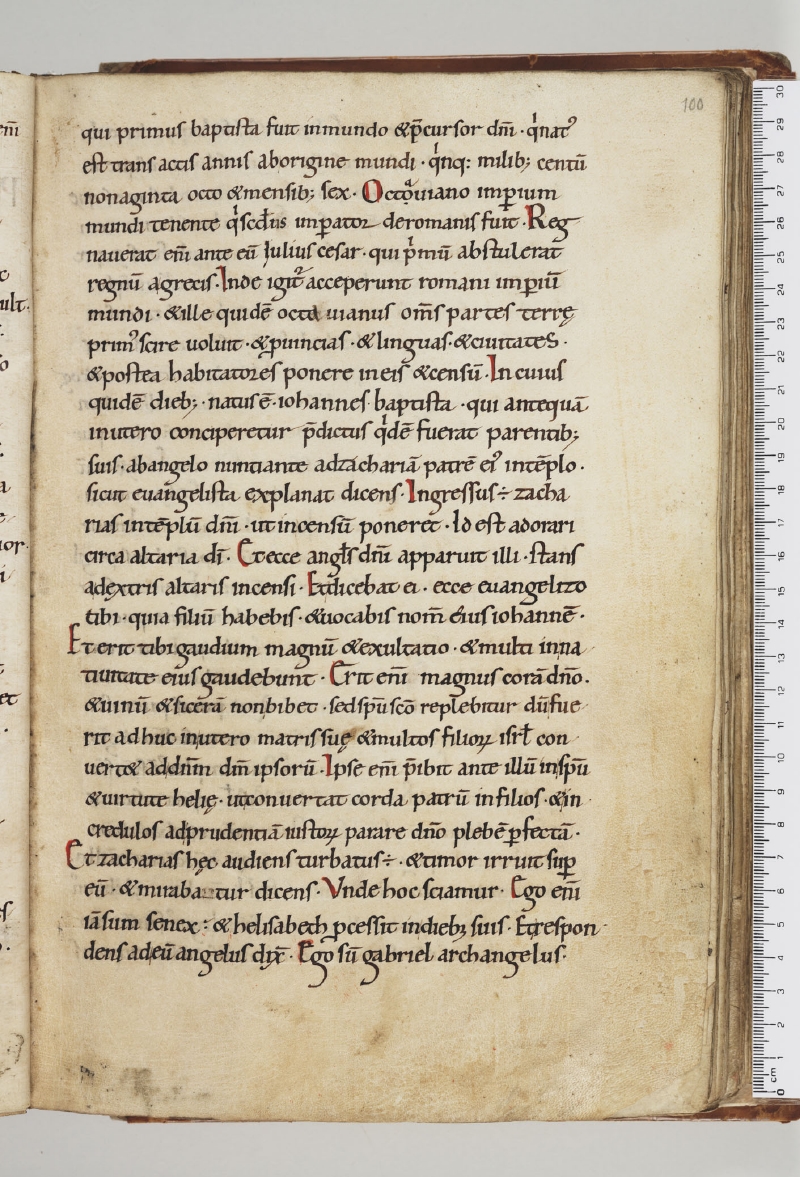 100
qui primus baptista fuit inmundo &p̄cursor dn̄i · qⁱnat᾽
est trans actis annis aborigine mundi · qⁱnq: milib; centū
nonaginta octo &mensib; sex · Octoᵃuiano imꝑium
mundi tenente qⁱscd̄us imꝑator deromanis fuit · Reg
nauerat eni̅ ante eū Iulius cesar · qui pⁱmū abstulerat
regnū agrecis · Inde igit᾽ acceperunt romani imꝑiū
mundi · &ille quidē octa uianus om̄s partes terrę
prim᾽ scire uoluit · &ꝓuincias · &linguas · &ciuitates ·
&postea habitatores ponere ineis &censū · In cuius
quidē dieb; · natus ē · iohannes baptista · qui antequā
inutero conciperetur p̄dictus qⁱdē fuerat parentib;
suis · abangelo nuntiante adzachariā patrē ei᾽ intēplo ·
sicut euangelista explanat dicens · Ingressus ÷ zacha
rias intēplū dn̄i · ut incensū poneret · Id est adorari
circa altaria dī · Et ecce angl̄s dn̄i apparuit illi · stans
adextris altaris incensi · Et dicebat ei · ecce euangelizo
tibi · quia filiū habebis · &uocabis nom̄ eius iohannē ·
Et erit tibi gaudium magnū &exultatio · &multi inna
tiuitate eius gaudebunt · Erit eni̅ magnus corā dn̄o .
&uinū &sicerā non bibet · sed sp̄u sc̄o replebitur dū fue
rit ad huc inutero matris suę &multos filioꝝ isrl̄ con
uert& addn̄m dm̄ ipsorū · Ipse eni̅ p̄ibit ante illū insp̄u
&uirtute helię · utconuertat corda patrū infilios · &in
credulos adprudentiā iustoꝝ parare dn̄o plebē ꝑfectā ·
Et zacharias hęc audiens turbatus ÷ · &timor irruit suꝑ
eū · &miraba tur dicens · Vnde hoc sciamur · Ego eni̅
iā sum senex : &helisabeth ꝓcessit indieb; suis · Et respon
dens adeū angelus dix̄ · Ego sū gabriel archangelus ·